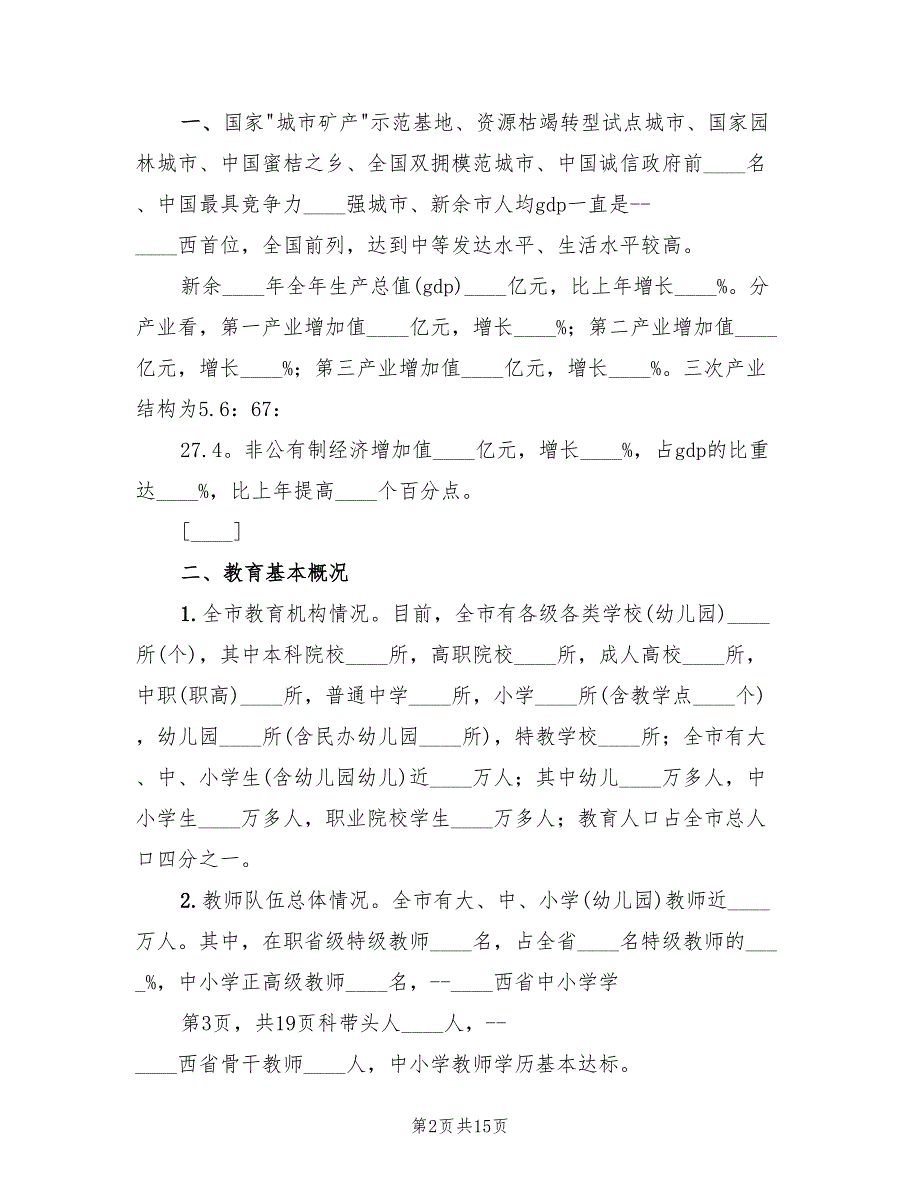 一、国家"城市矿产"示范基地、资源枯竭转型试点城市、国家园
林城市、中国蜜桔之乡、全国双拥模范城市、中国诚信政府前____名
、中国最具竞争力____强城市、新余市人均gdp一直是--
____西首位，全国前列，达到中等发达水平、生活水平较高。
新余____年全年生产总值(gdp)____亿元，比上年增长____%。分
产业看，第一产业增加值____亿元，增长____%；第二产业增加值____
亿元，增长____%；第三产业增加值____亿元，增长____%。三次产业
结构为5.6：67：
27.4。非公有制经济增加值____亿元，增长____%，占gdp的比重
达____%，比上年提高____个百分点。
[____]
二、教育基本概况
1.全市教育机构情况。目前，全市有各级各类学校(幼儿园)____
所(个)，其中本科院校____所，高职院校____所，成人高校____所，
中职(职高)____所，普通中学____所，小学____所(含教学点____个)
，幼儿园____所(含民办幼儿园____所)，特教学校____所；全市有大
、中、小学生(含幼儿园幼儿)近____万人；其中幼儿____万多人，中
小学生____万多人，职业院校学生____万多人；教育人口占全市总人
口四分之一。
2.教师队伍总体情况。全市有大、中、小学(幼儿园)教师近____
万人。其中，在职省级特级教师____名，占全省____名特级教师的___
_%，中小学正高级教师____名，--____西省中小学学
第3页，共19页科带头人____人，--
____西省骨干教师____人，中小学教师学历基本达标。
第2页共15页